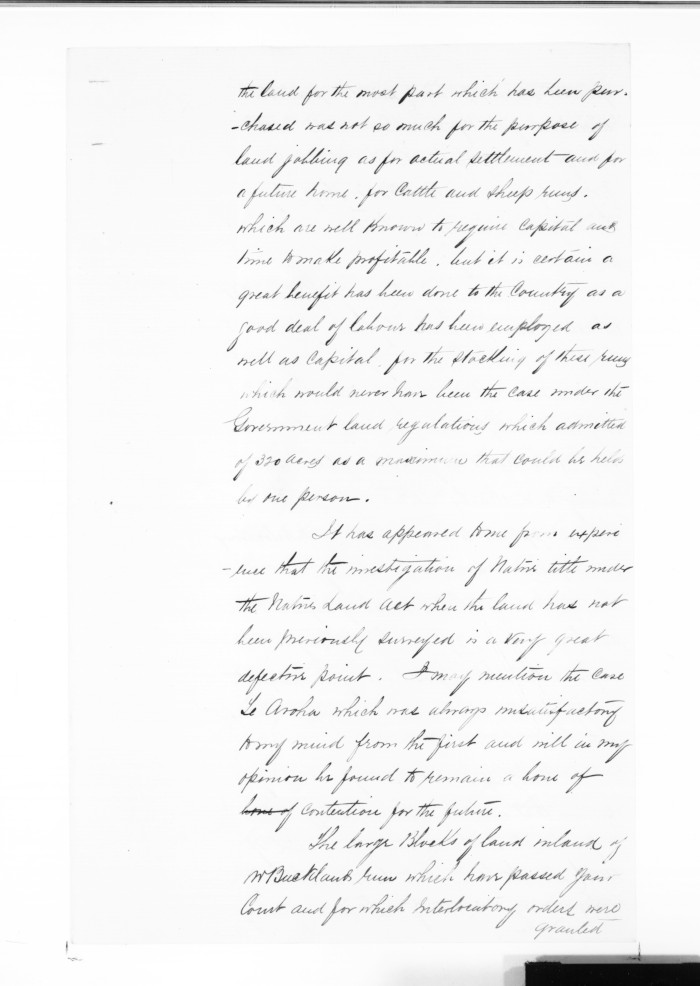 the land for the most part which has been pur-
-chased was not so much for the purpose of
land jobbing as for actual settlement and for
a future home. for Cattle and Sheep runs.
which are well known to require Capital and
time to make profitable. but it is certain a
great benefit has been done to the Country as a
good deal of labour has been employed as
well as Capital. for the stocking of these runs
which would never have been the case under the
Government land regulations which admitted
of 320 acres as a maximum that could be held
by one person.
It has appeared to me from experi
-ence that the investigation of Native title under
the Native Land Act when the land has not
been previously surveyed is a very great
defective point. I may mention the case
Te Aroha which was always unsatisfactory
to my mind from the first and will in my
opinion be found to remain a bone of
bone of contention for the future.
The large Blocks of land inland of
W Bucklands run which have passed your
Court and for which Interlocutory orders were
granted